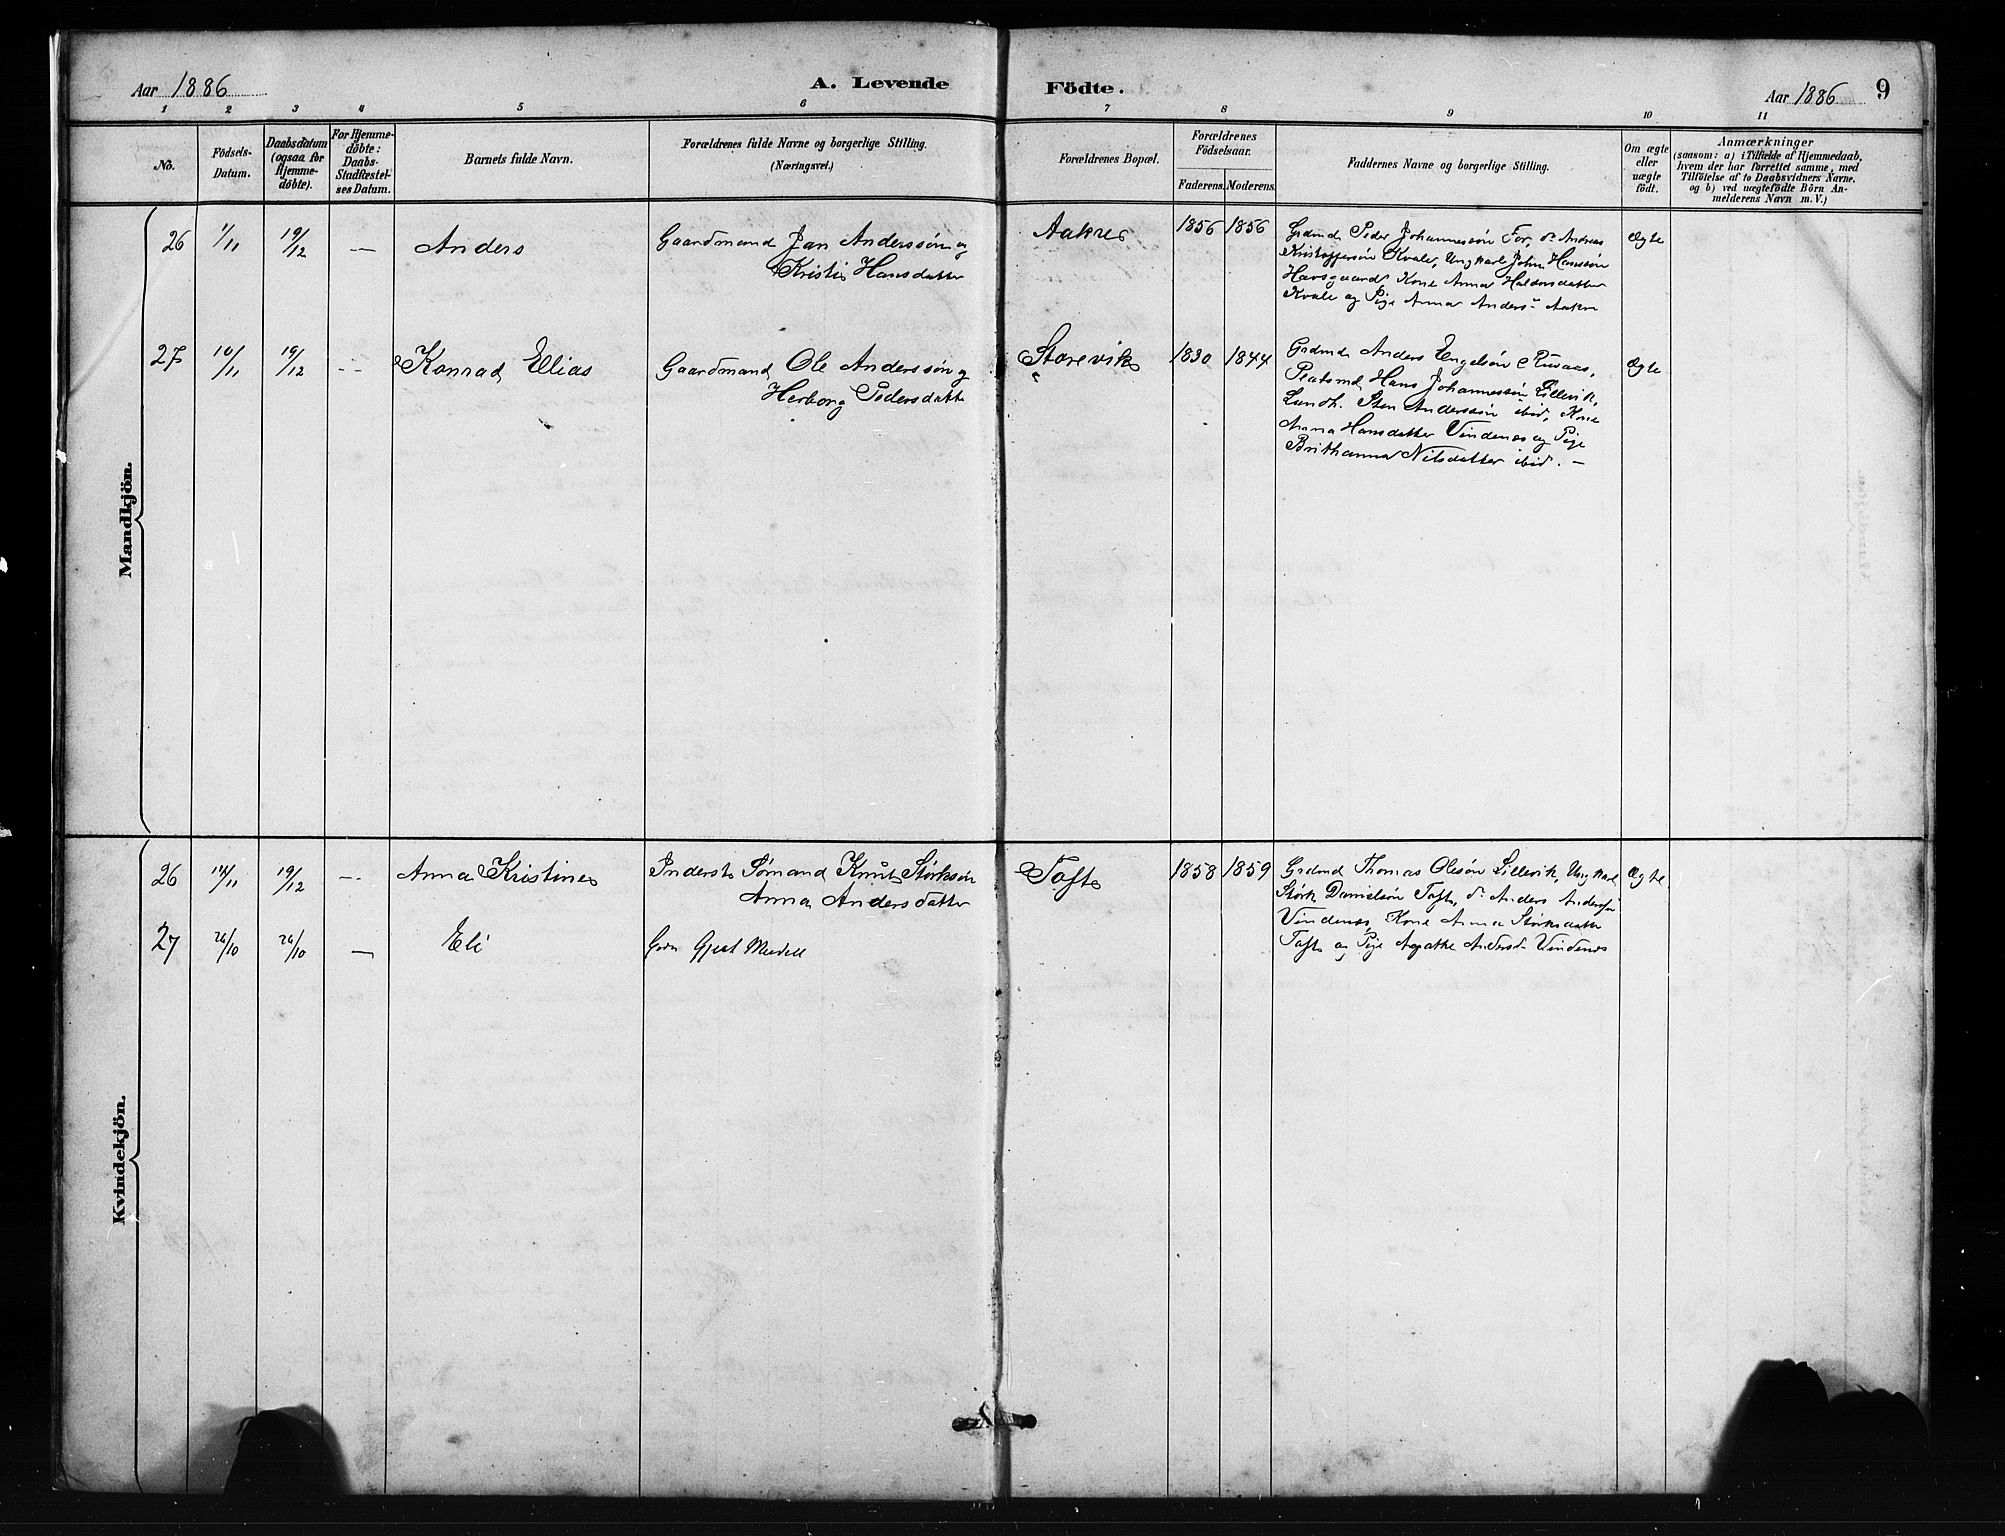 Aar 1886
A. Levende
Födte.
Aar 1886
9
1 2 3 4 5 6 7 8 9 10 11
No.
Födsels-
Datum.
Daabsdatum
(ogsaa for
Hjemme-
döbte).
For Hjemme-
döbte:
Daabs-
Stadfæstel-
ses Datum.
Barnets fulde Navn.
Forældrenes fulde Navne og borgerlige Stilling.
(Næringsvei.)
Forældrenes Bopæl.
Forældrenes
Födselsaar.
Faderens. Moderens.
Faddernes Navne og borgerlige Stilling.
Om ægte
eller
uægte
födt.
Anmærkninger
(saasom: a) i Tilfælde af Hjemmedaab,
hvem der har forrettet samme, med
Tilföielse af to Daabsvidners Navne.
og b) ved uægtefödte Börn An-
melderens Navn m. V.)
Mandkjön.
26 1/11 19/12 — Anders
Gaardmand Jan Anderssøn og
Kristi Hansdatter
Aakre 1856 1856
Grdmd Peder Johannessøn For, do Andreas
Kristoffersøn Kvale, Ungkarl John Hanssøn
Havsgaard, Kone Anna Haldorsdatter
Kvale og Pige Anna Anders- Aakre
Ægte
27 10/11 19/12 -- Konrad Elias
Gaardmand Ole Anderssøn og
Herborg Pedersdatter
Storevik 1830 1844
Grdmd Anders Engelsøn Ruaas,
Pladsmd Hans Johannessøn Lillevik,
Landh. Sten Anderssøn ibid, Kone
Anna Hansdatter Vindenæs og Pige
Brithanna Nilsdatter ibid. —
Ægte
Kvindekjön.
26 14/11 19/12 — Anna Kristine
Inderst Sømand Knut Størksøn
Anna Andersdatter
Toft 1858 1859
Grdmd Thomas Olesøn Lillevik, Ungkarl
Størk Danielsøn Toft, do Anders Anderssøn
Vindenæs, Kone Anna Størksdatter
Toft og Pige Agathe Andersd- Vindenæs
Ægte
27 26/10 26/10 — Eli
Gjert